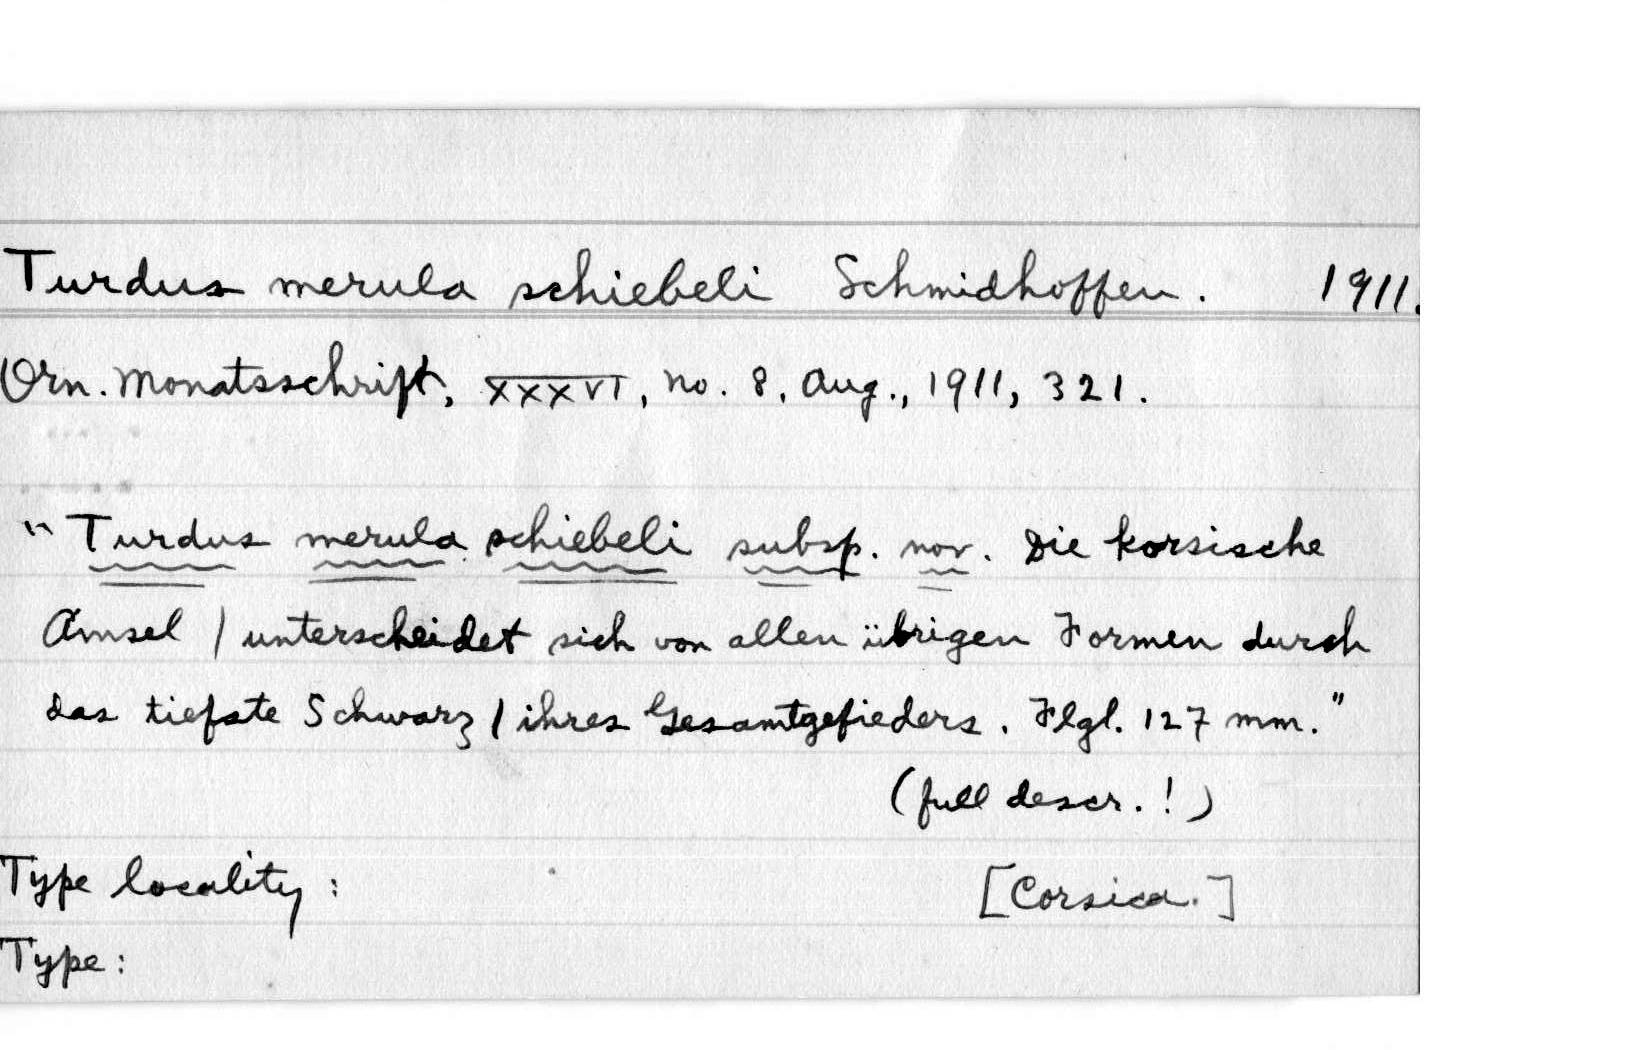 Turdus merula schiebeli Schmidhoffen. 1911.
Orn. Monatsschrift, XXXVI, no. 8, Aug., 1911, 321.
"Turdus merula schiebeli subsp. nov. Die korsische
Amsel / unterscheidet sich von allen übrigen Formen durch
das tiefste Schwarz / ihres Gesamtgefieders. Flgl. 127 mm."
(full descr. !)
Type locality: [Corsica.]
Type: